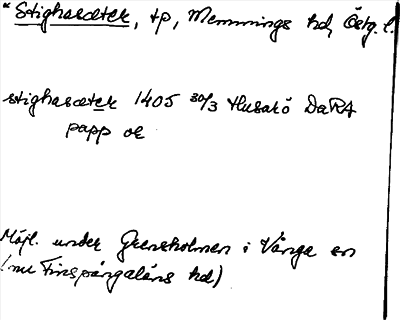 * Stighasæter, tp, Memmings hd, Östg. l.
stighasæter 1405 30/3 Husarö DaRA
papp or
Möjl. under Grensholmen i Vånga sn
(nu Finspångaläns hd)